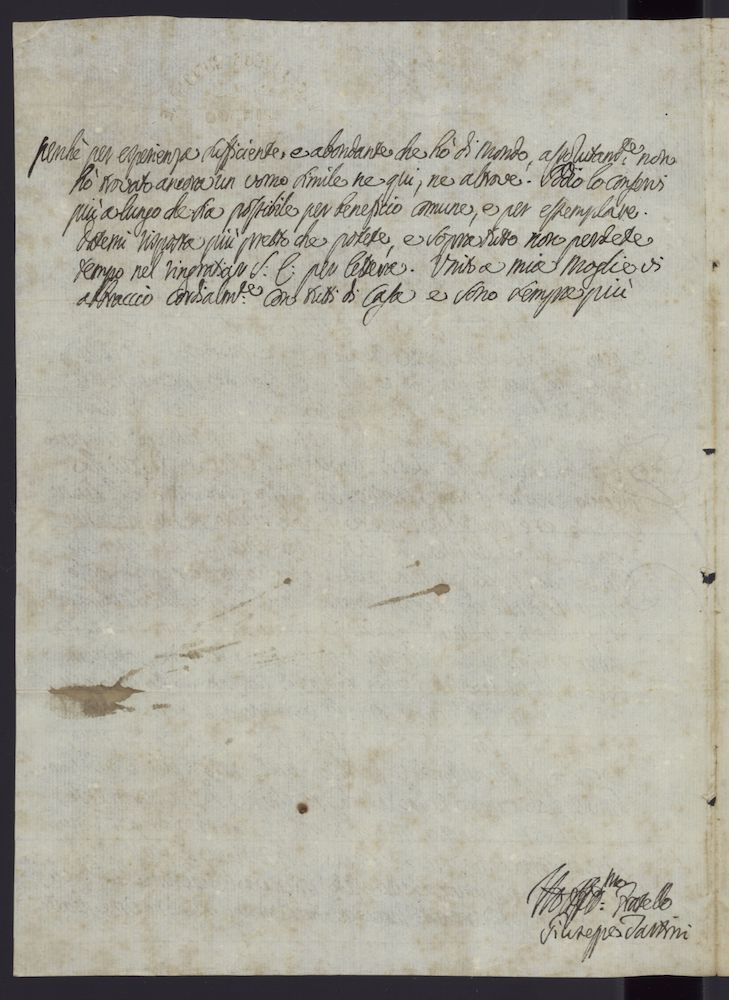 perchè per esperienza sufficiente, e abondante che hò di Mondo, assolutam.te non
hò trovato ancora un uomo simile ne qui, ne altrove. Iddio lo conservi
più a lungo che sia possibile per beneficio comune, e per essemplare.
Datemi risposta più presto che potete, e sopra tutto non perdete
tempo nel ringraziar S. E. per lettera. Unito a mia Moglie vi
abbraccio cordialm.te con tutti di Casa e sono sempre più
Vostro Aff.mo Fratello
Giuseppe Tartini